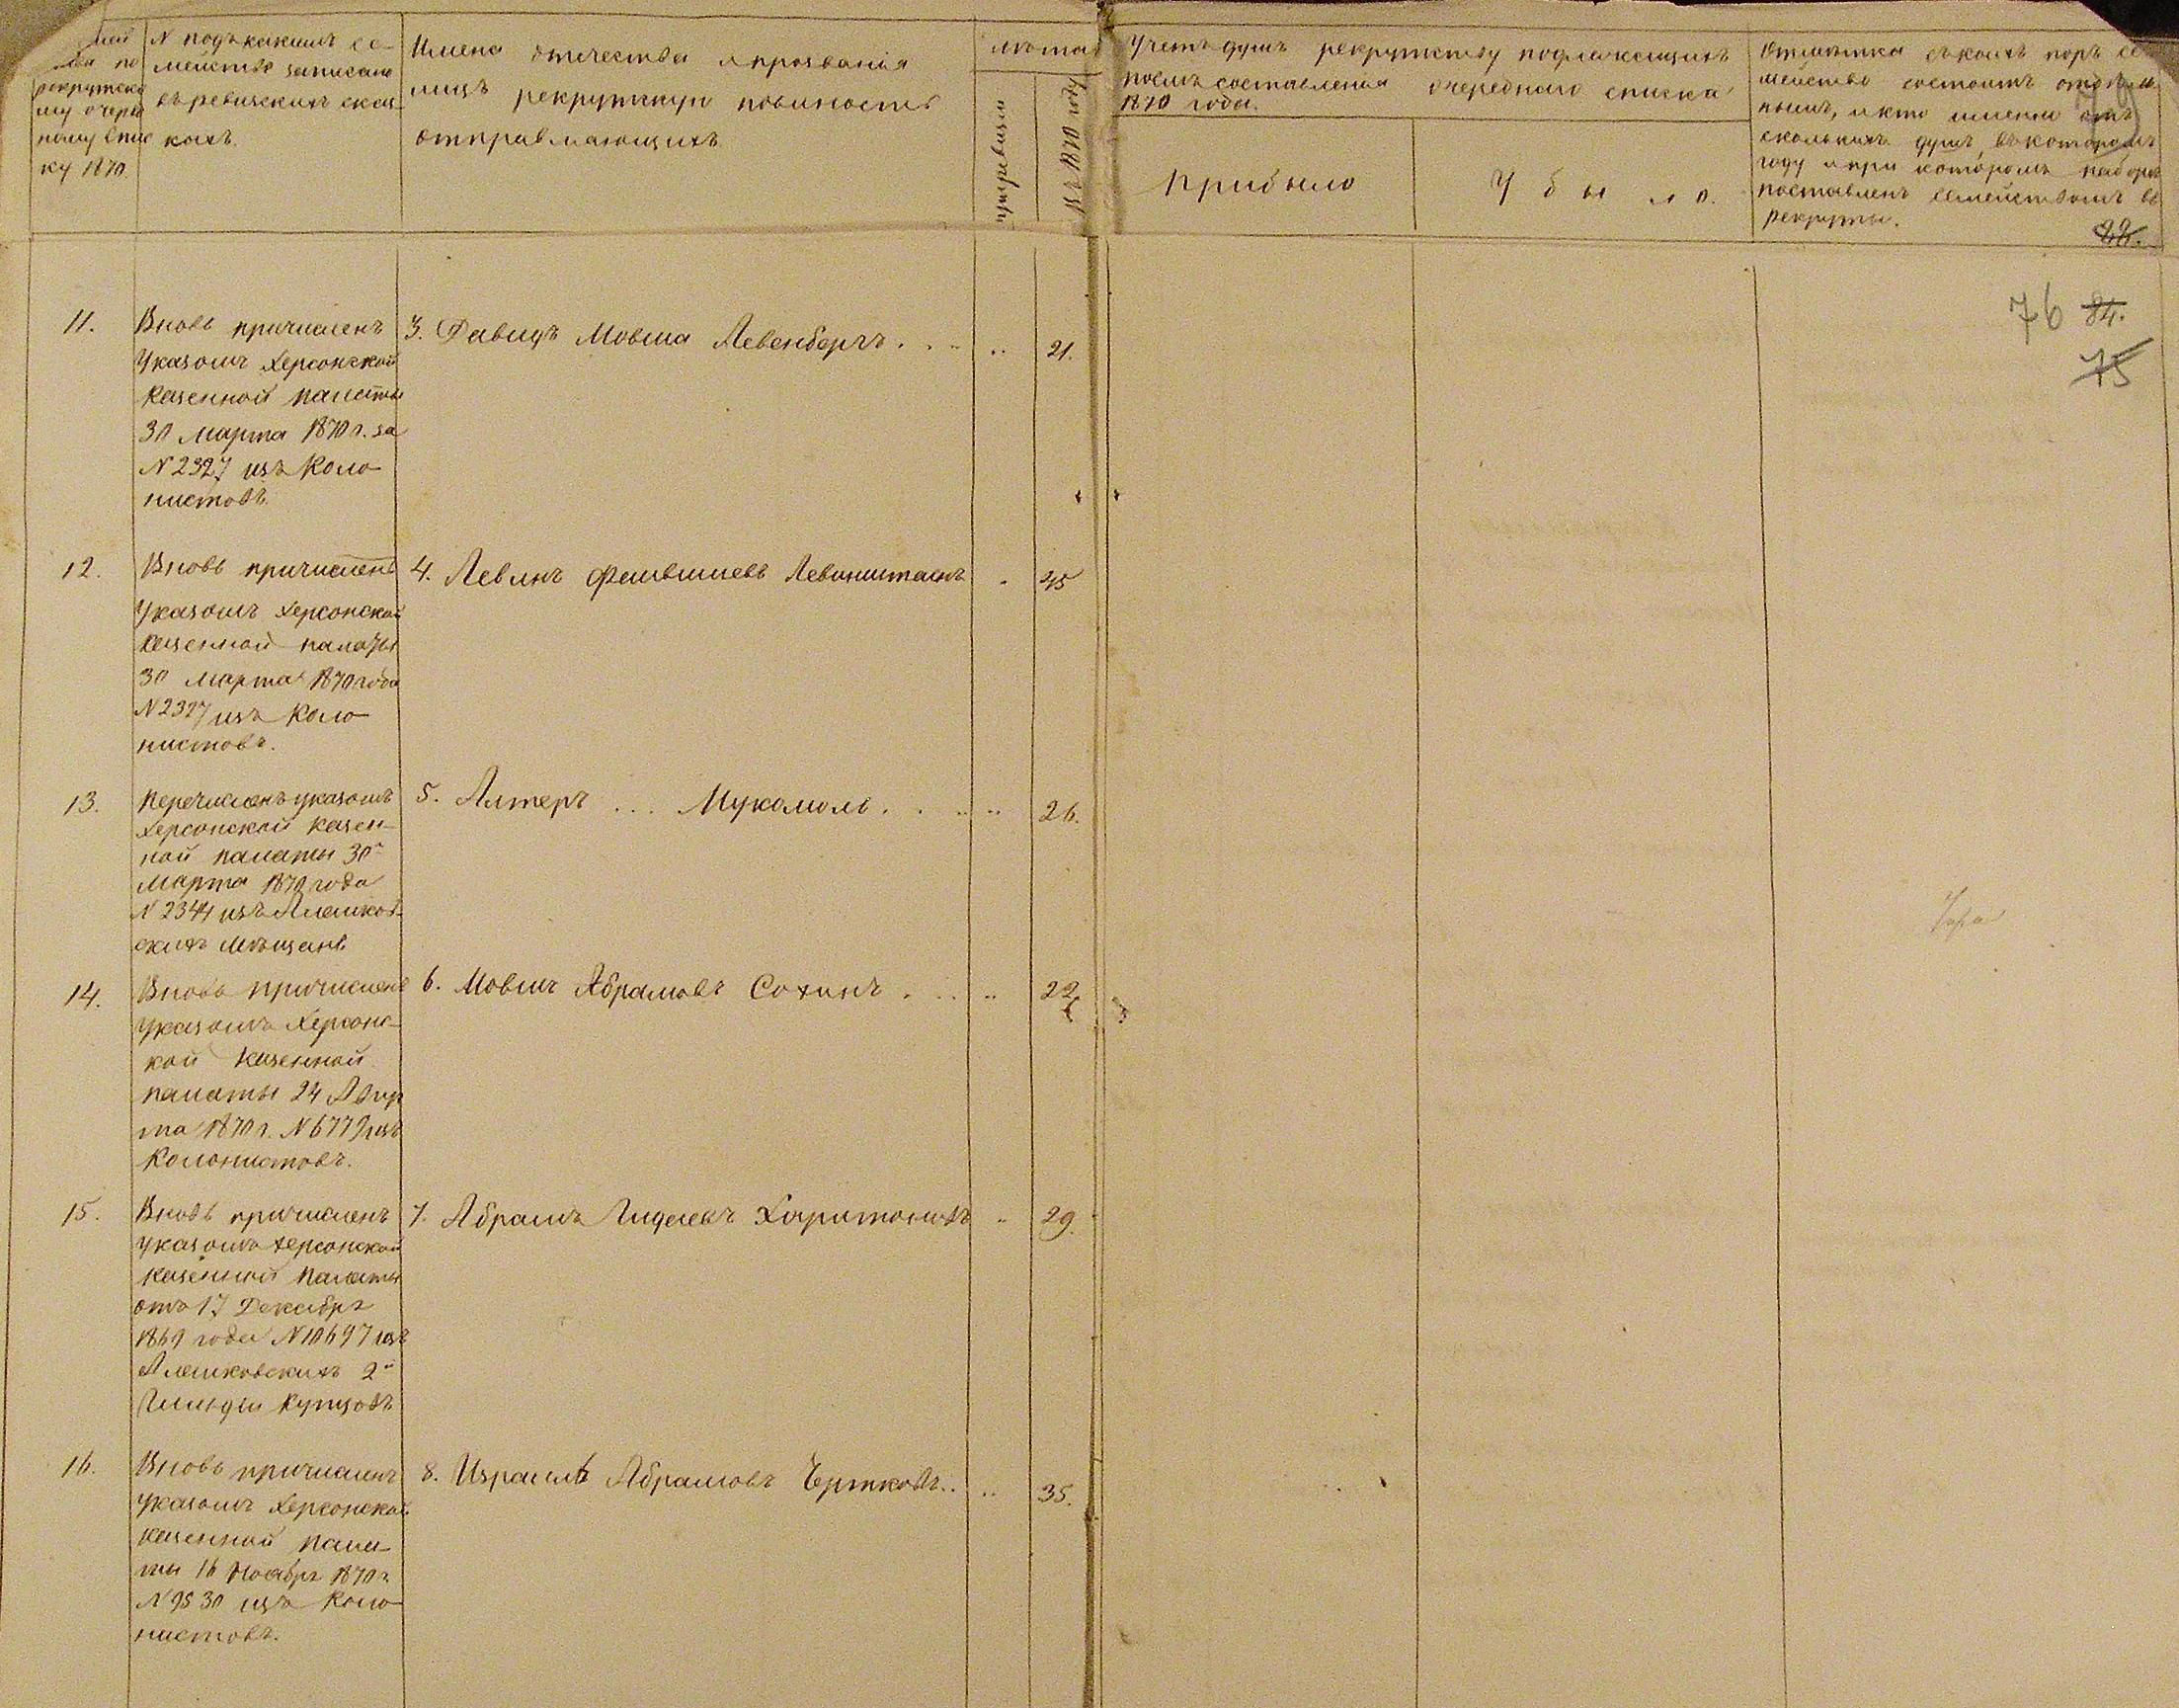 рекрутско
му очеред
ному спис
ку 1870.
N подъ какимъ се-
мейство записано
въ ревизскихъ сказ-
кахъ.
Имена отчества и прозванія
лицъ рекрутскую повиность
отправляющихъ.
лѣта
по ревизіи
въ 1870 году
Учетъ душъ рекрутству подлежащихъ
послѣ составленія очереднаго списка
1870 года.
Прибыло
Убыло.
Отмѣтка съ коихъ поръ се
мейство состоитъ отдѣль
нымъ, и кто именно отъ
сколькихъ душъ, въ которомъ
году и при которомъ наборѣ
поставленъ семействомъ въ
рекруты.
76 84.
75
11.
Вновь причисленъ
Указомъ Херсонской
Казенной Палаты
30 Марта 1870 г. за
N 2327 изъ Коло-
нистовъ.
3. Давидъ Мовша Левенбергъ. . .. .. 21.
12.
Вновь причисленъ
Указомъ Херсонской
Казенной палаты
30 Марта 1870 года
N 2327 изъ Коло-
нистовъ.
4. Левинъ Фаивишевъ Левинштаенъ . 45
13.
Перечисленъ указомъ
Херсонской Казен-
ной палаты 30
Марта 1870 года
N 2344 изъ Алешков-
скихъ Мѣщанъ
5. Алтеръ ... Мукомоль. . .. .. 26.
14.
Вновь причисленъ
Указомъ Херсонс-
кой Казенной
палаты 24 Авгу
ста 1870 г. N 6779 изъ
Колонистовъ.
6. Мовша Абрамовъ Сохинъ . .. .. 22
15.
Вновь причисленъ
указомъ Херсонской
Казенной Палаты
отъ 17 Декабря
1869 года N 10697 изъ
Алешковскихъ 2й
Гильдіи Купцовъ
7. Абрамъ Гиделевъ Харитоновъ .. 29.
16.
Вновь причисленъ
Указомъ Херсонской
Казенной Пала-
ты 16 Ноября 1870 г.
N 9530 изъ Коло-
нистовъ.
8. Израиль Абрамовъ Чертковъ.. .. 35.